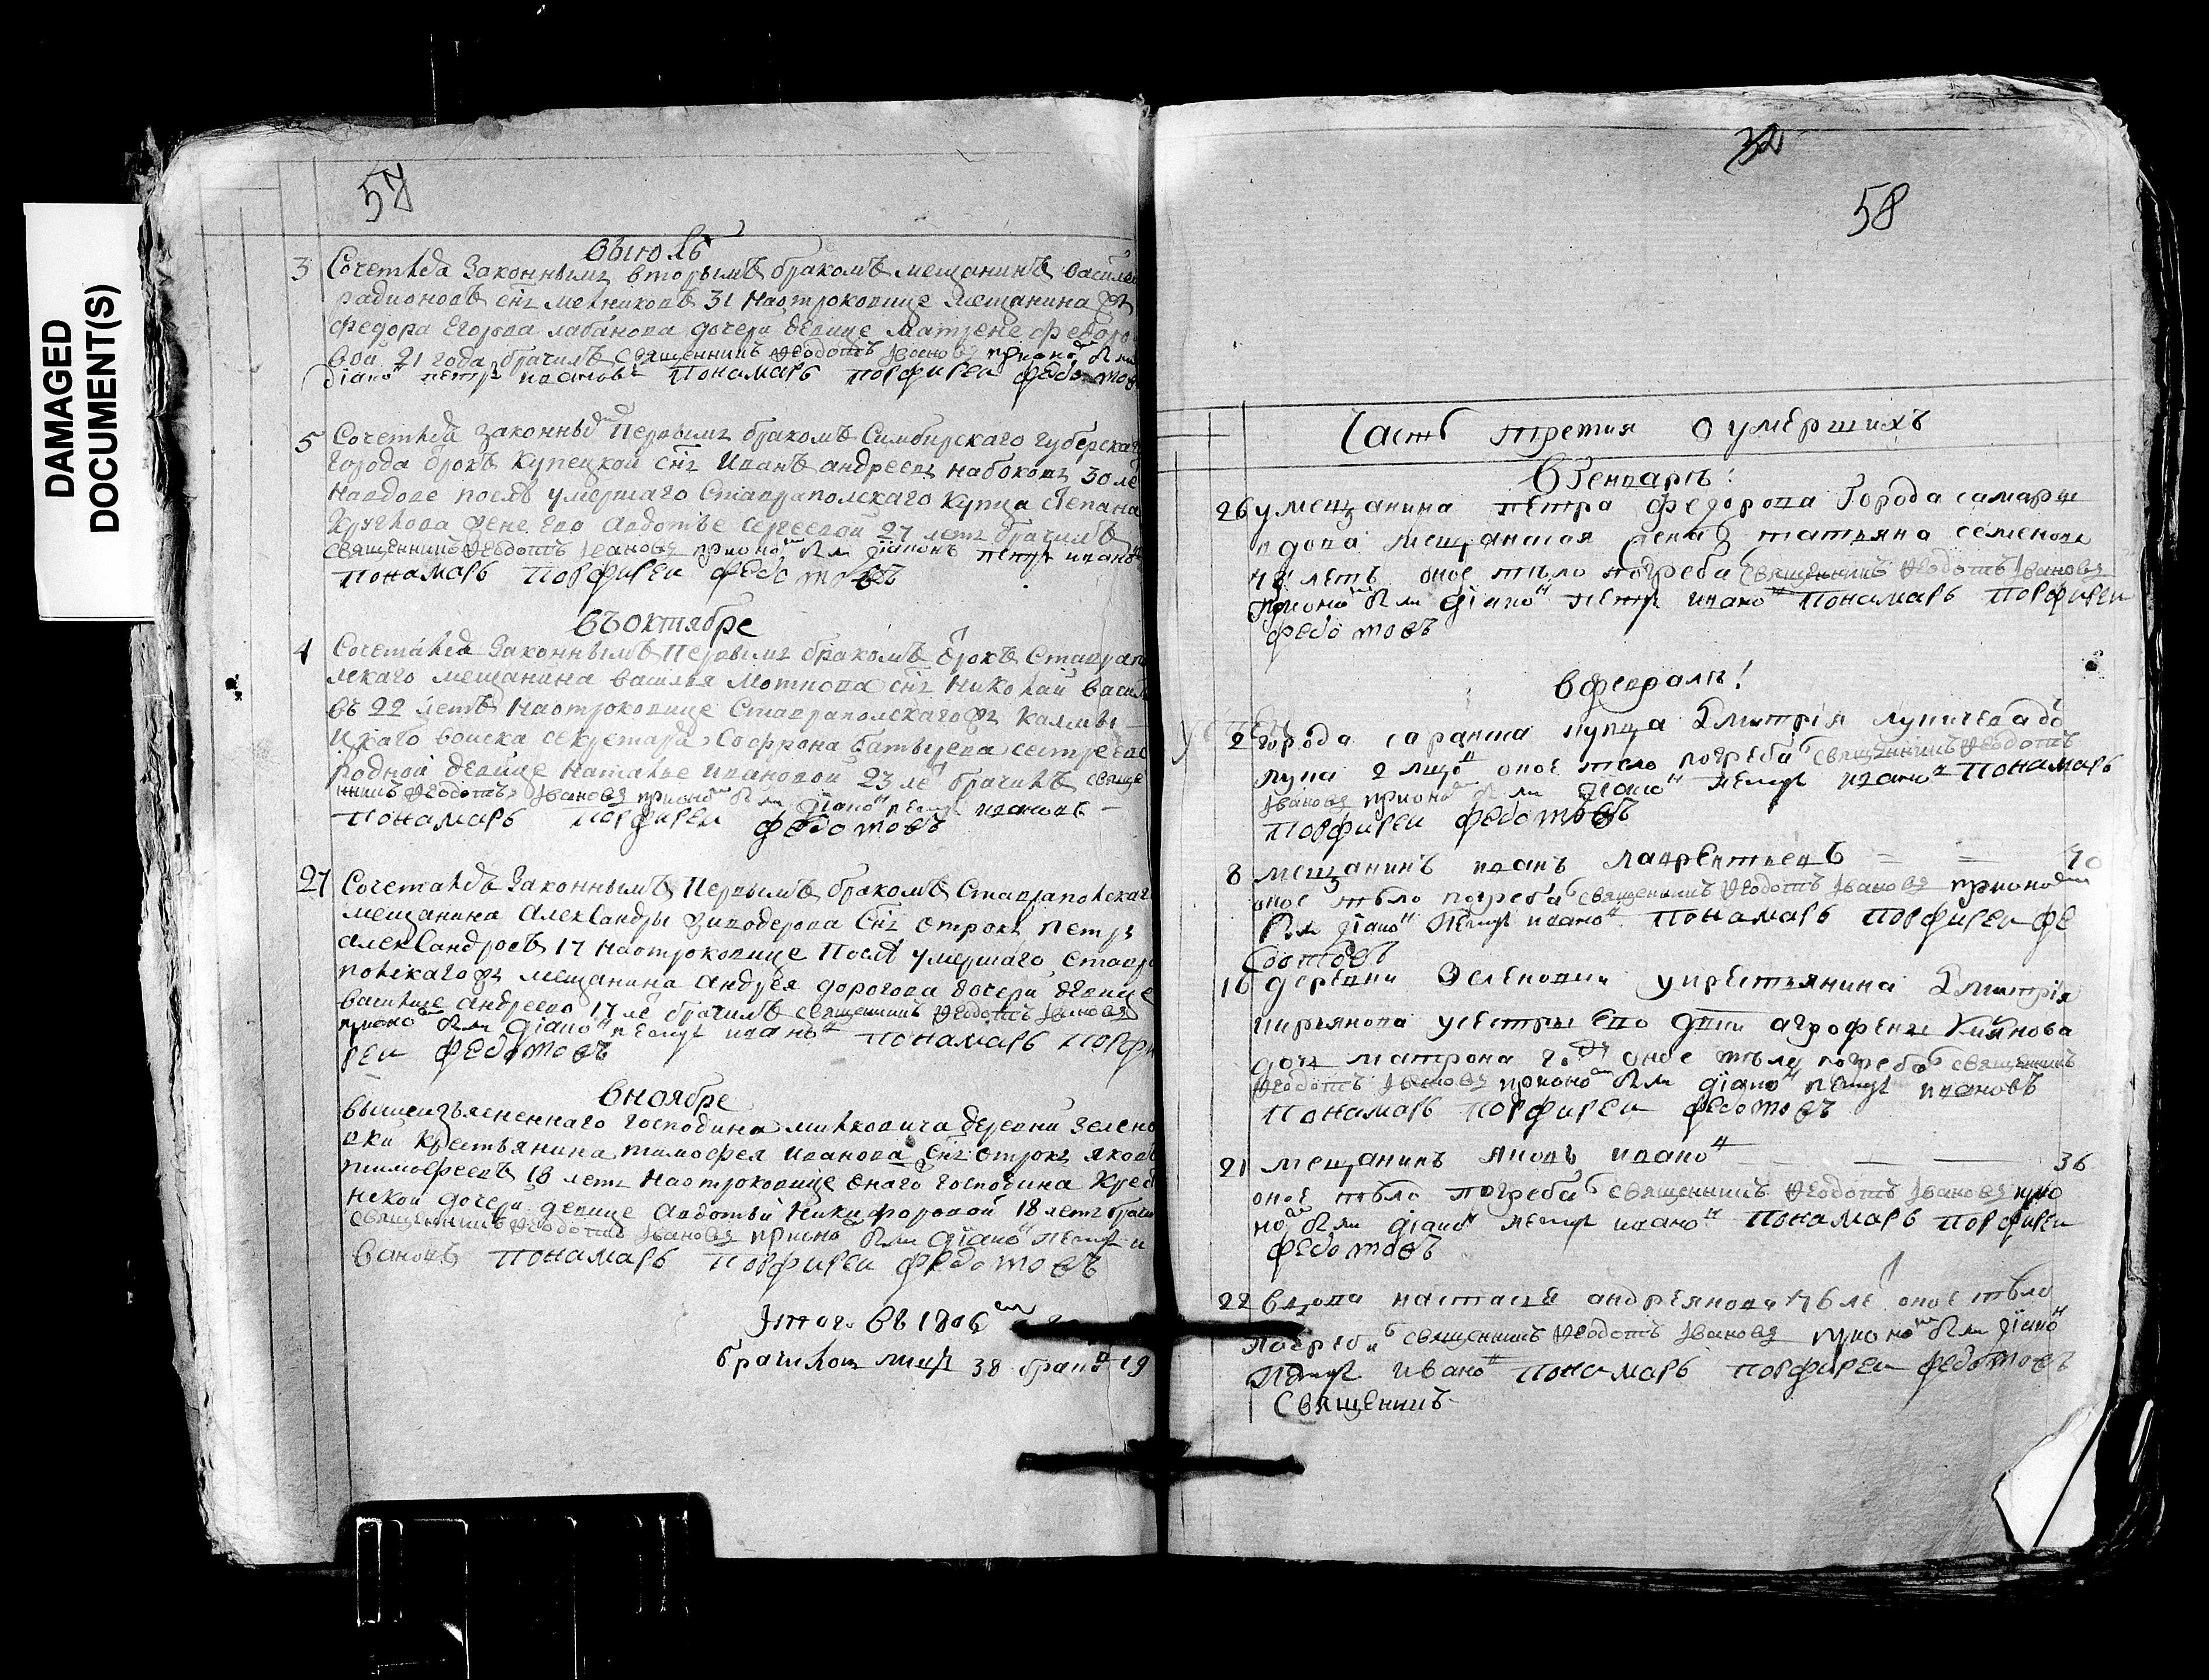 DAMAGED
DOCUMENT(S)
57
Виюлѣ
3 Сочетался законнымъ вторымъ бракомъ мещанинъ Васил
радионовъ снъ 31 на отроковице мещанина
федора Егорова лабанова дочери девице Матрене федоро
вой 21 года брачилъ священникъ Ѳеодотъ Ивановъ
Дiако петръ ивановъ Пономарь порфиреи федотов
5 Сочетался законны Первымъ бракомъ Симбирскаго губерскаг
города отрокъ Купецкой снъ Иванъ андреевъ набоковъ 30 ле
на вдове послѣ умершаго Ставраполскаго Купца Степана
жене Ево Авдотье сергеевой 27 летъ брачилъ
священникъ Ѳеодотъ Ивановъ дiаконъ петръ ивановъ
пономарь порфиреи федотовъ
Въ октябре
4 Сочетался Законнымъ Первымъ бракомъ Отрокъ Ставрапо
лскаго мещанина василья снъ Николай васил
въ 22 летъ На отроковице Ставраполскаго Калмы
цкаго воиска секретаря Софрона сестре
родной девице Наталье ивановой 23 ле брачилъ свяще
нникъ Ѳеодотъ Ивановъ дiако петръ ивановъ
пономарь порфиреи федотовъ
27 Сочетался Законнымъ Первымъ бракомъ Ставрапольскаг
мещанина Александры Живодерова Снъ Отрокъ Петръ
александровъ 17 на отроковице После умершаго Ставра
польскаго мещанина андрея дорогова дочери девице
василисе андреево 17 ле брачилъ священникъ Ѳеодотъ Ивановъ
дiако петръ ивановъ пономарь порфи
реи федотовъ
вноябре
вышеизъясненнаго господина милковича деревни зелено
вки крестьянина тимофея иванова снъ отрокъ яковъ
тимофеевъ 18 летъ на отроковице онаго господина
дочери девице авдотьи Никифоровой 18 летъ брачи
священникъ Ѳеодотъ Ивановъ дiако петръ и
вановъ пономарь порфиреи федотовъ
Итого въ 1806
лицъ 38 браковъ 19
32
58
Часть третия о умершихъ
В Генваръ:
26 у мещанина петра федорова города самары
вдова мещанская жена татьяна семенова
летъ оное тѣло погреба священникъ Ѳеодотъ Ивановъ
дiако петръ ивано пономарь порфиреи
федотовъ
вфевралѣ!
2 города саранска купца Дмитрiя
2 оное тело погреба священникъ Ѳеодотъ
Ивановъ дiако петръ ивано пономарь
порфиреи федотовъ
8 мещанинъ иванъ лаврентьевъ 70
оное тѣло погреба священникъ Ѳеодотъ Ивановъ
дiако петръ ивано пономарь порфиреи фе
дотовъ
16 деревни Зеленовки у крестьянина Дмитрiя
кирьянова у сестры ево агрофены
дочь матрона оное тѣло погреба священникъ
Ѳеодотъ Ивановъ дiако петръ ивановъ
пономарь порфиреи федотовъ
21 мещанинъ яковъ ивано 36
оное тѣло погреба священникъ Ѳеодотъ Ивановъ
дiако петръ ивано пономарь порфиреи
федотовъ
22 вдова настасья андреянова 76 ле оное тѣло
погреба священникъ Ѳеодотъ Ивановъ дiако
петръ ивано пономарь порфиреи федотовъ
Священникъ